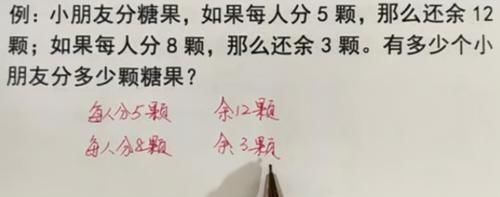 例：小朋友分糖果，如果每人分 5 颗，那么还余 12
颗；如果每人分 8 颗，那么还余 3 颗。有多少个小
朋友分多少颗糖果？
每人分5颗 余12颗
每人分8颗 余3颗